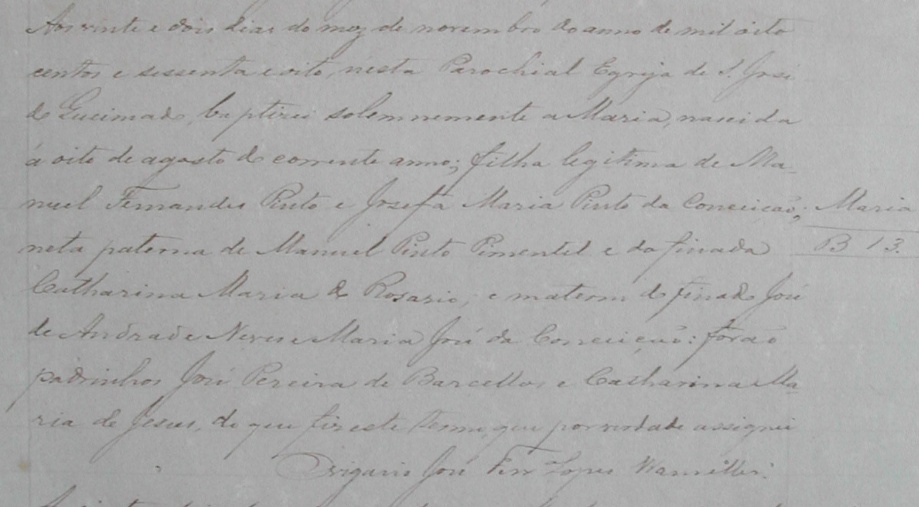 Aos vinte e dois dias do mez de novembro do anno de mil oito
centos e sessenta e oito, nesta Parochial Egreja de S. José
de Queimado, baptizei solemnemente a Maria, nascida
á oito de agosto do corrente anno; filha legitima de Ma-
nuel Fernandes Pinto e Josefa Maria Pinto da Conceicão;
Maria
neta paterna de Manuel Pinto Pimentel e da finada
B 13.
Catharina Maria do Rosario; e materna do finado José
de Andrade Neves e Maria José da Conceição: forão
padrinhos José Pereira de Barcellos e Catharina Ma-
ria de Jesus, do que fiz este termo, que por verdade assignei
O vigario José Lopes